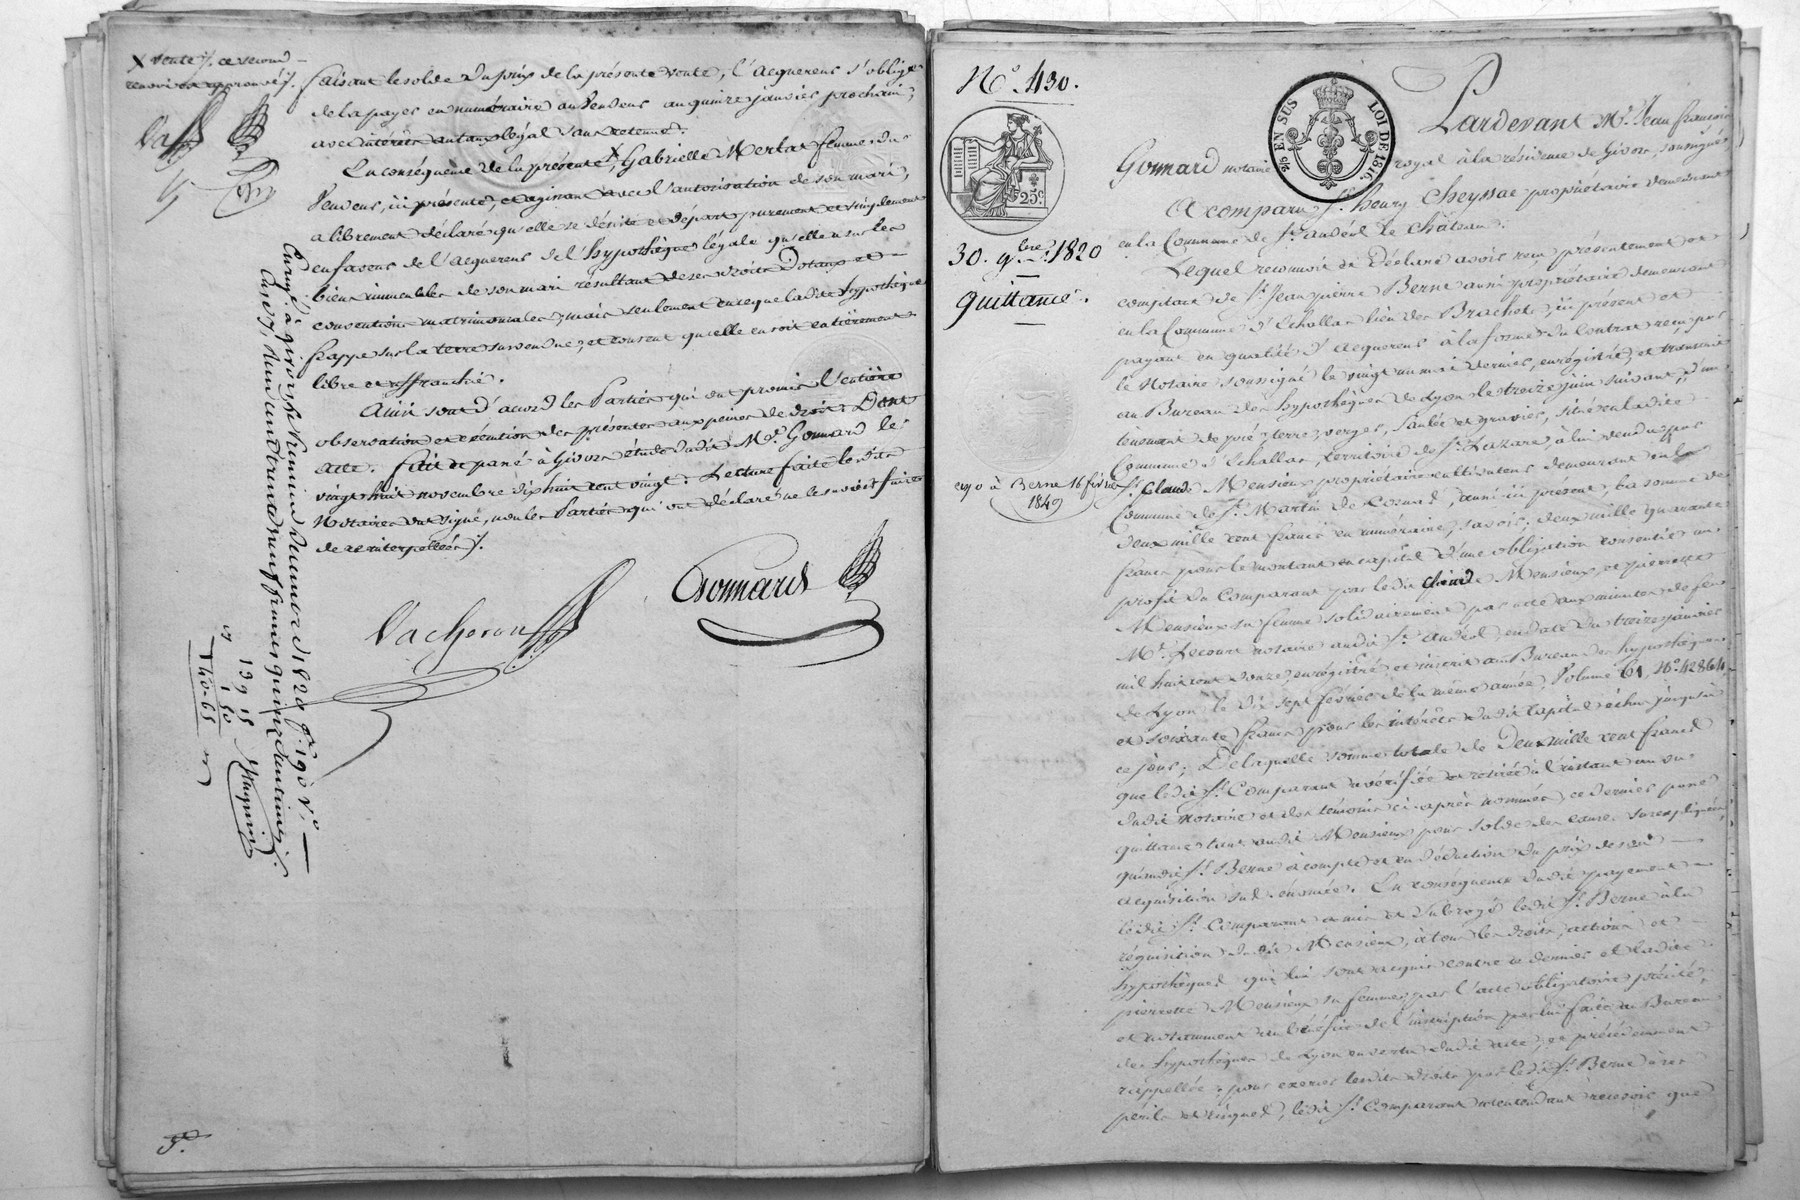 X vente ce second
renvoi approuvé
faisant le solde du prix de la présente vente, l'acquereur s'oblige
de la payer en numéraire au vendeur au quinze janvier prochain,
avec intérêts au taux légal sans retenue.
En conséquence de la présente X, Gabrielle Merlat femme du
vendeur, ici présente, et agissant avec l'autorisation de son mari,
a librement déclaré qu'elle se désiste et départ purement et simplement
en faveur de l'acquereur de l'hypothèque légale qu'elle a sur les
biens immeubles de son mari résultant de ses droits dotaux et
conventions matrimoniales, mais seulement en ce que ladite hypothèque
frappe sur la terre survendue, et consent qu'elle en soit entièrement
libre et affranchie.
Ainsi sont d'accord les Parties qui ont promis l'entière
observation et exécution des présentes aux peines de droit. Dont
acte. fait et passé à Givors étude dudit Me. Gonnard le
vingt huit novembre dix huit cent vingt. Lecture faite lesdits
Notaires ont signé, non les Parties qui ont déclaré ne le savoir faire
de ce interpellées.
Gonnard
Vacheron
Enregé. à givors le premier decembre 1820 f° 190 v°.
Reçu cent trente neuf francs quinze centimes
139 15
1 50
140-65
N° 430.
25c
2/5 EN SUS
LOI DE 1816.
30. 9bre 1820
Quittance.
Pardevant Me. Jean francois
Gonnard notaire royal à la résidence de Givors, soussigné,
A comparu Sr. henry Cheyssac propriétaire demeurant
en la Commune de St. andeol le château.
Lequel reconnoit et déclare avoir reçu présentement et
comptant de Sr. Jean pierre Berne aussi propriétaire demeurant
en la Commune d'Echallas lieu des Brachets, ici présent et
payant en qualité d'acquereur à la forme du contrat reçu par
le Notaire soussigné le vingt un mai dernier, enrégistré, et transcrit
au Bureau des hypothèques de Lyon le treize juin suivant, d'un
tènement de pré, terre, verger, saulée et gravier, situé en ladite
Commune d'Echallas, territoire de St. Lazare, à lui vendu par
expo à Berne 16 février
1849
Sr. Claude Mensieux propriétaire cultivateur demeurant en la
Commune de St. Martin de Cornas, aussi ici présent, la somme de
deux mille cent francs en numéraire, savoir, deux mille quarante
francs pour le montant en capital d'une obligation consentie au
profit du comparant par ledit Claude Mensieux, et pierrette
Mensieux sa femme solidairement par acte aux minutes de feu
Me. Lecourt notaire audit St. andeol, en date du treize janvier
mil huit cent douze, enrégistré et inscrit au Bureau des hypothèques
de Lyon le dix sept février de la même année, Volume 61, N°. 42864,
et soixante francs pour les intérêts dudit capital échus jusqu'à
ce jour; de laquelle somme totale de Deux mille cent francs
que ledit Sr. Comparant a vérifiée et retirée à l'instant au vu
dudit notaire et des témoins ci-après nommés, ce dernier passe
quittance tant audit Mensieux pour solde des causes susexpliquées,
qu'audit Sr. Berne à compte et en déduction du prix de son
acquisition sus-énoncée. En conséquence dudit payement
ledit Sr. Comparant a mis et subrogé ledit Sr. Berne à la
réquisition dudit Mensieux, à tous les droits, actions et
hypothèques qui lui sont acquis contre ce dernier et ladite
pierrette Mensieux sa femme, par l'acte obligatoire précité,
et notamment au bénéfice de l'inscription par lui faite au Bureau
des hypothèques de Lyon en vertu dudit acte, et précédemment
rappellée, pour exercer lesdits droits par ledit Sr. Berne à ses
périls et risques, ledit Sr. Comparant n'entendant recevoir que